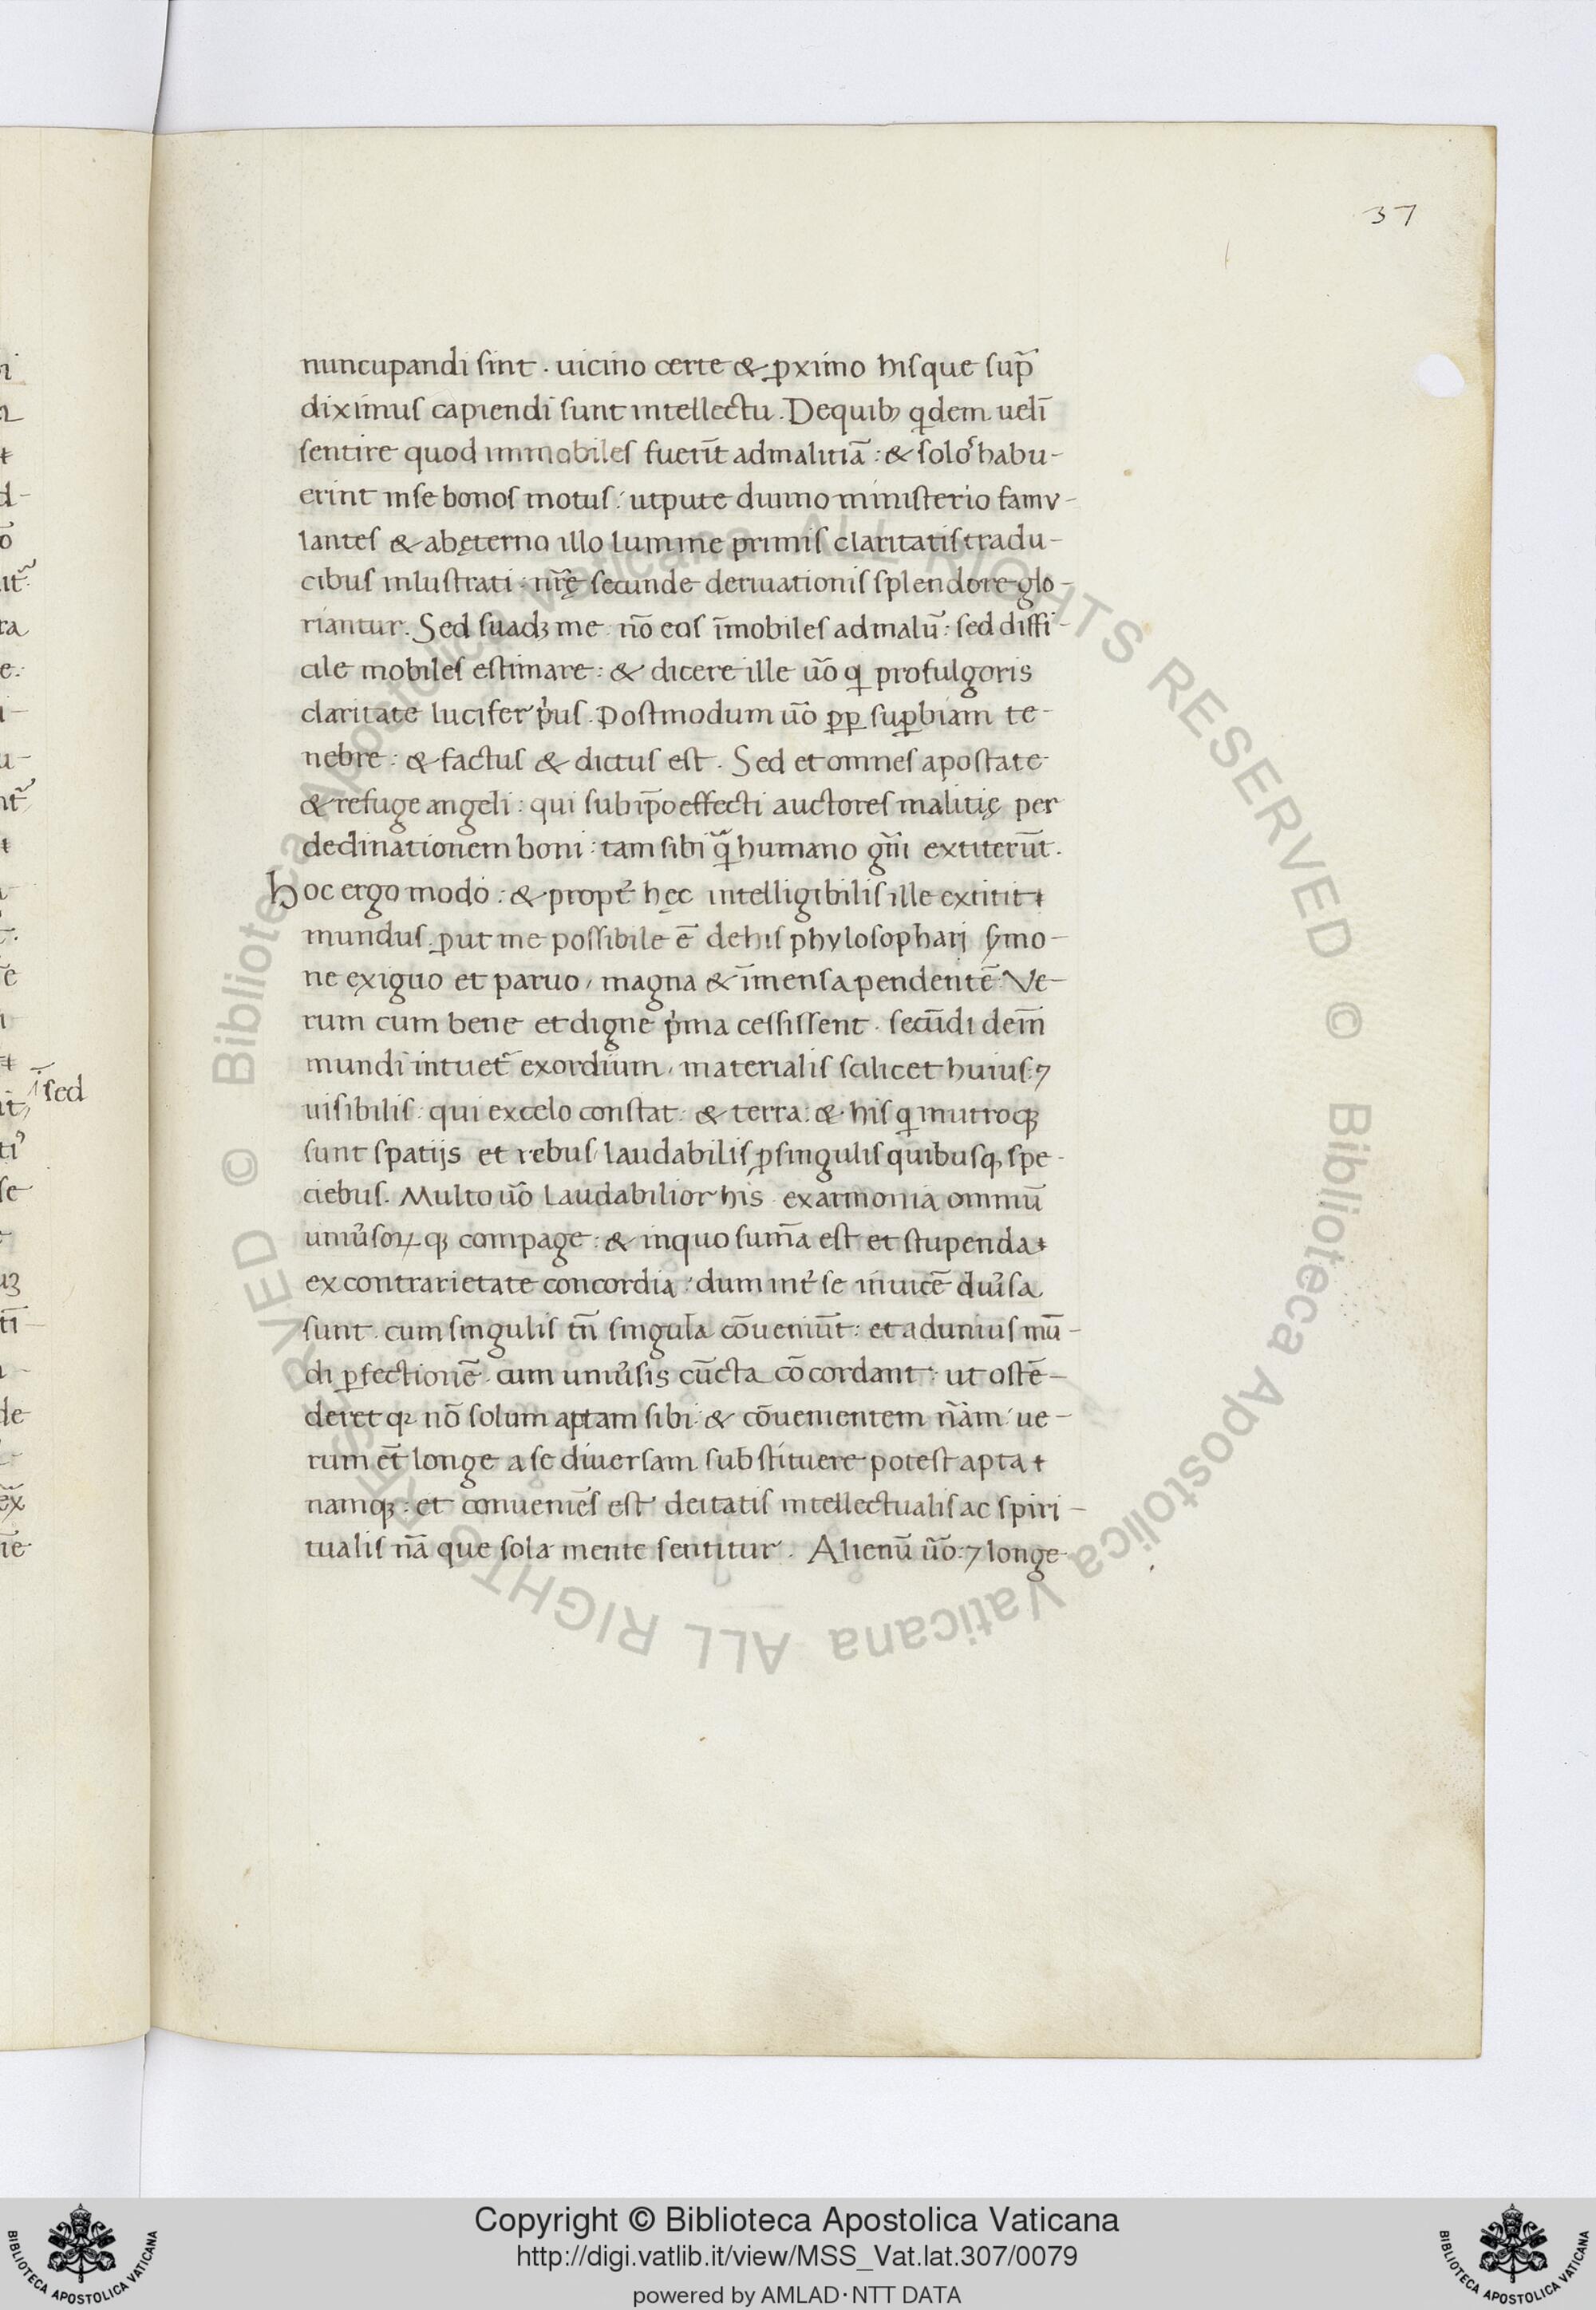 37
nuncupandi sint · uicino certe & ꝓximo hisque sup̃
diximus capiendi sunt intellectu. De quibꝫ qdem uelĩ
sentire quod immobiles fuerĩt ad malitiã : & solos habu-
erint in se bonos motus : utpute diuino ministerio famu-
lantes & ab ęterno illo lumine primis claritatis tradu-
cibus inlustrati : nr̃ę secunde deriuationis splendore glo-
riantur. Sed suadꝫ me nõ eos ĩmobiles ad malũ : sed diffi-
cile mobiles estimare : & dicere ille uõ q pro fulgoris
claritate lucifer pͥus. Postmodum uõ ꝓp suꝑbiam te-
nebre : & factus & dictus est. Sed et omnes apostate
& refuge angeli : qui sub ip̃o effecti auctores malitię per
declinationem boni : tam sibi q̃ humano gñi extiterũt.
Hoc ergo modo : & propt̃ hęc intelligibilis ille extitit
mundus ꝓut me possibile ẽ de his phylosophari s̃mo-
ne exiguo et paruo, magna & ĩmensa pendentẽ. Ve-
rum cum bene et digne pͥma cessissent · secũdi dem̃
mundi intuet̃ exordium, materialis scilicet huius : ⁊
uisibilis : qui ex celo constat : & terra : & his q in utroqꝫ
sunt spatijs et rebus, laudabilis ꝓ singulis quibusqꝫ spe-
ciebus. Multo uõ laudabilior his ex armonia omniũ
uniũsoꝝqꝫ compage : & in quo sum̃a est et stupenda
ex contrarietate concordia : dum int̃ se inuicẽ diũsa
sunt · cum singulis tñ singula cõueniũt : et ad unius mũ-
di ꝑfectionẽ · cum uniũsis cũcta cõcordant : ut ostẽ-
deret qꝛ nõ solum aptam sibi : & cõuenientem nãm : ue-
rum et̃ longe a se diuersam substituere potest apta
namqꝫ : et conueniẽs est deitatis intellectualis ac spiri-
tualis nã que sola mente sentitur. Alienũ uõ : ⁊ longe
sed
© Biblioteca Apostolica Vaticana ALL RIGHTS RESERVED
© Biblioteca Apostolica Vaticana ALL RIGHTS RESERVED
Copyright © Biblioteca Apostolica Vaticana
http://digi.vatlib.it/view/MSS_Vat.lat.307/0079
powered by AMLAD · NTT DATA
BIBLIOTECA APOSTOLICA VATICANA
BIBLIOTECA APOSTOLICA VATICANA